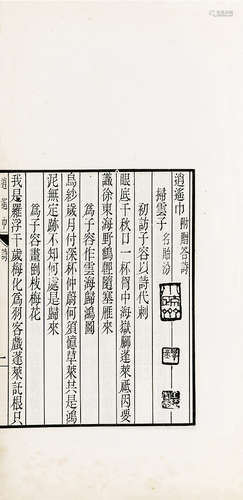 逍遙巾 附贈答詩
掃雲子 名貽汾
初訪子容以詩代刺
眼底千秋日一杯胷中海嶽關蓬萊祗因要
識徐東海野鶴輕隨塞雁來
爲子容作雲海歸鴻圖
烏紗歲月付深杯仲蔚何須憶草萊共是鴻
泥無定跡不知何處是歸來
爲子容畫倒枝梅花
我是羅浮千歲梅化爲羽客戲蓬萊託根只
逍遙巾
詩
一